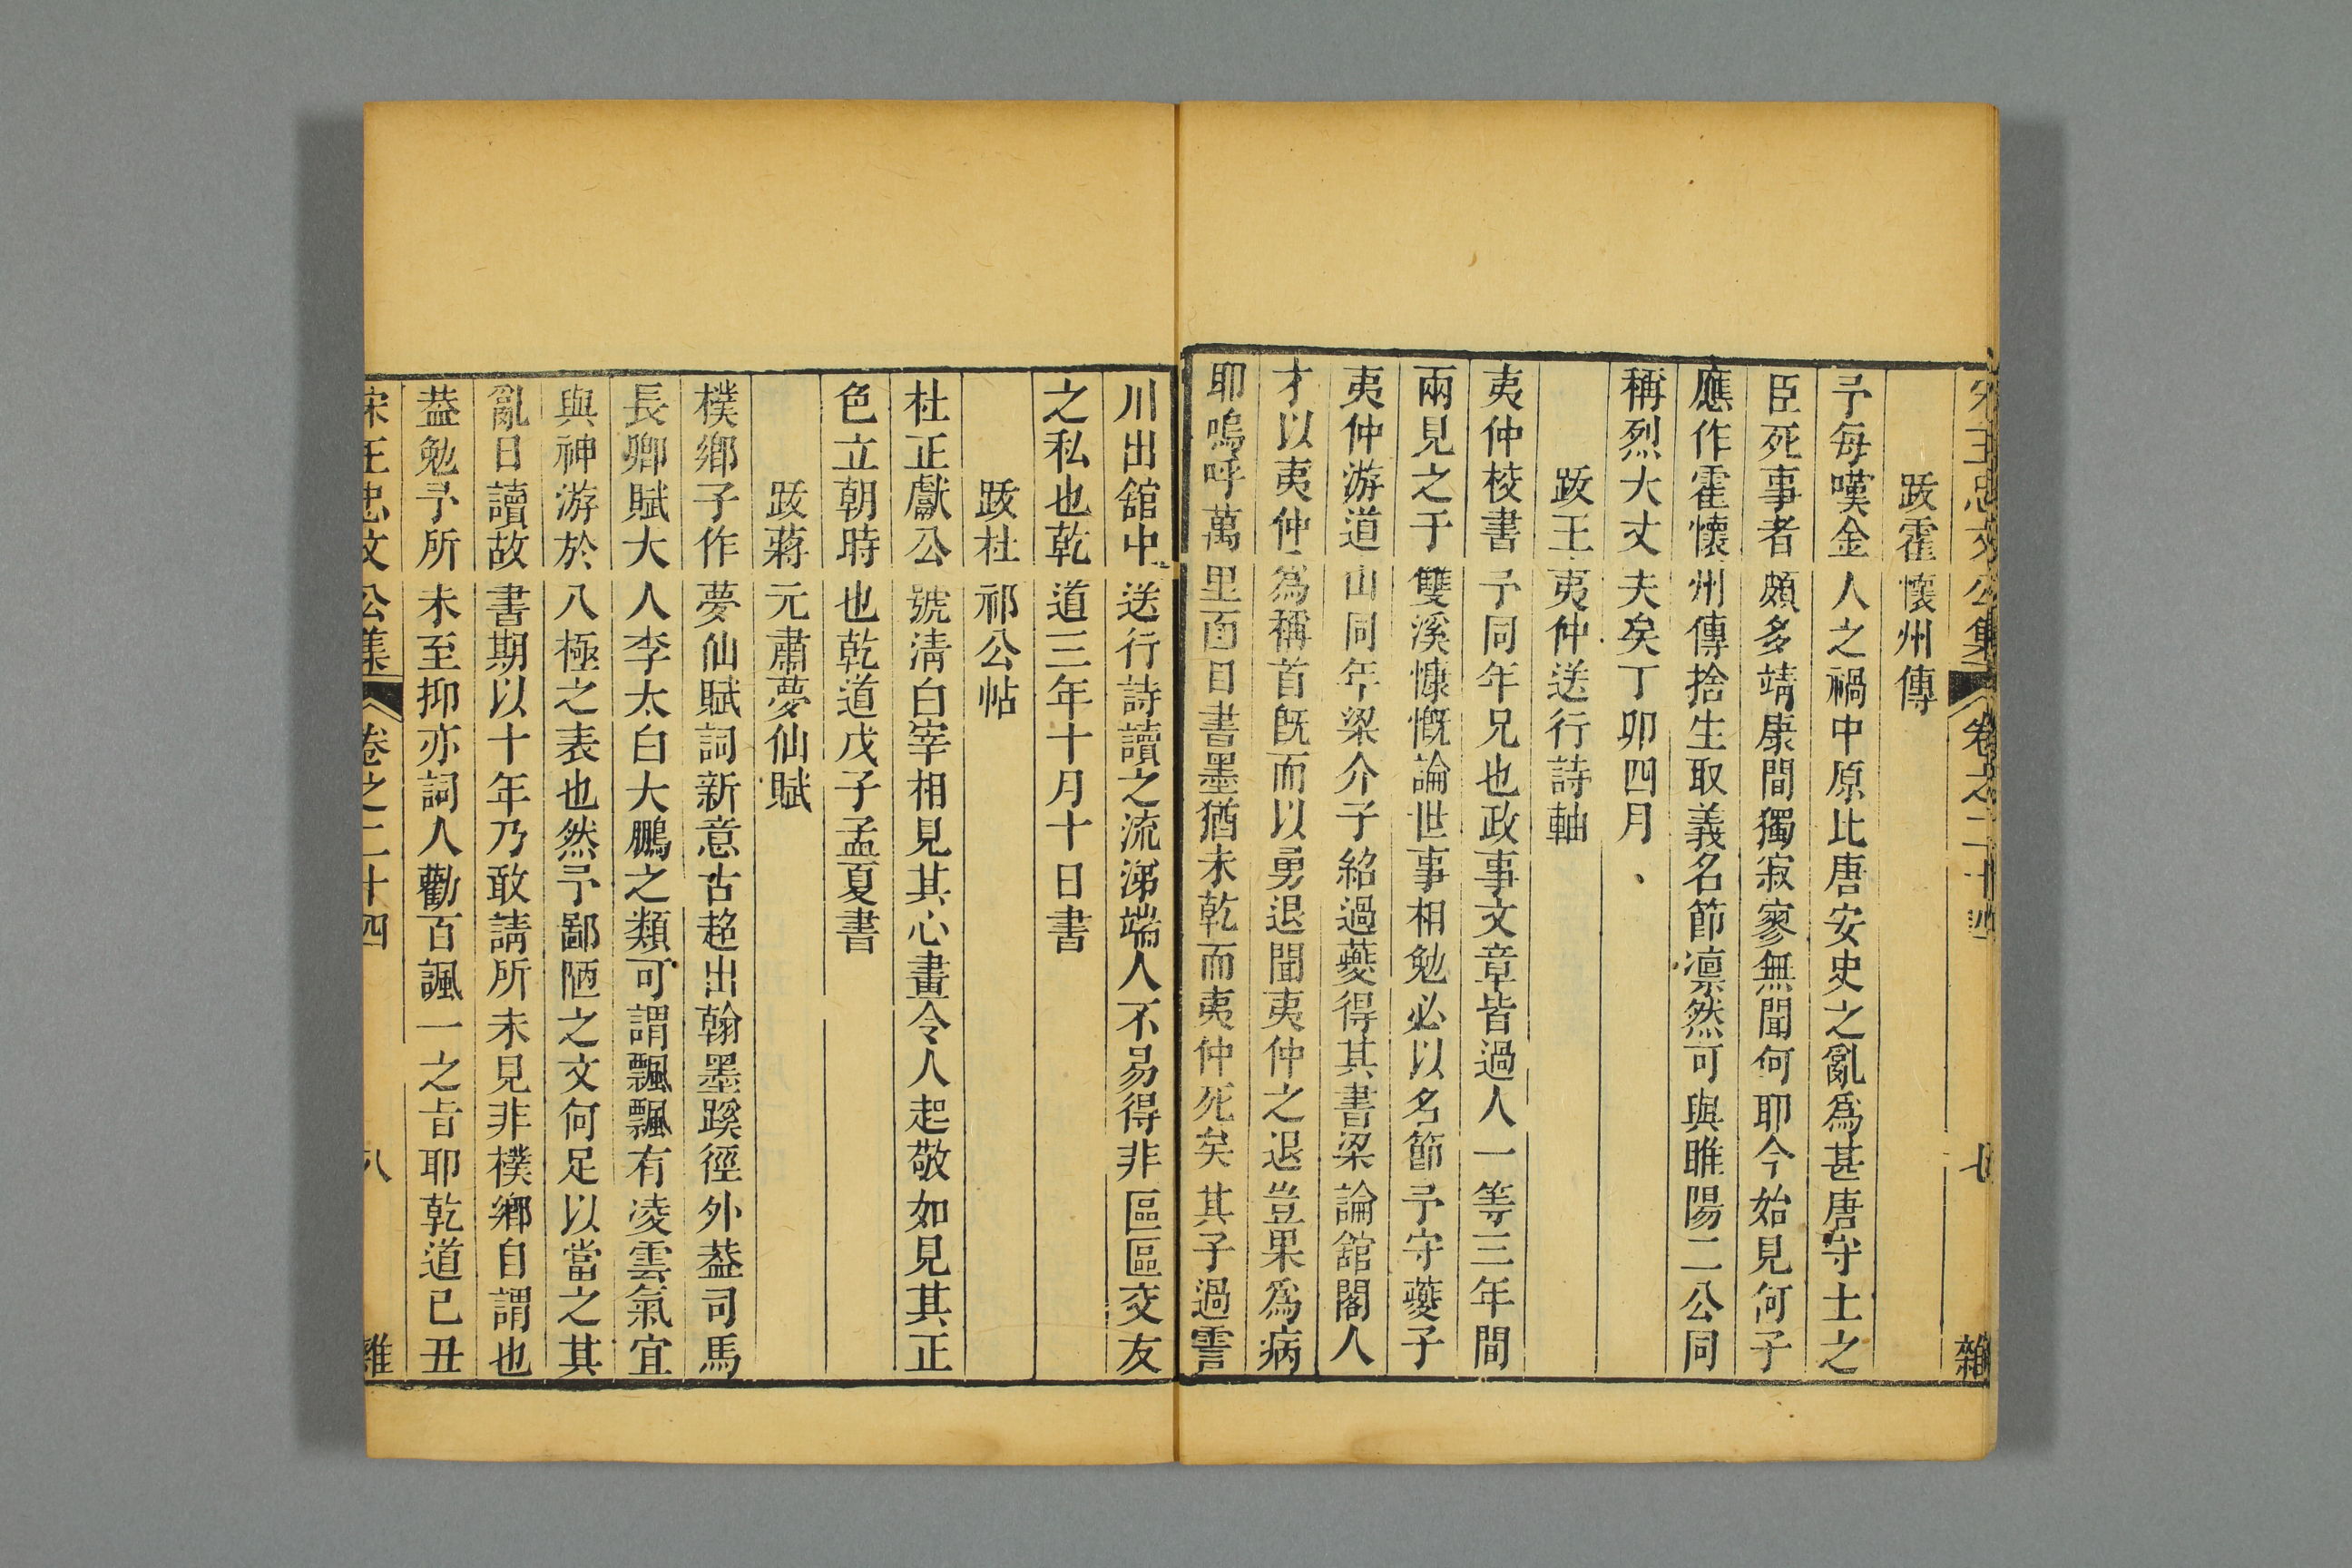 宋王忠文公集 卷之二十四 七 雜
跋霍懷州傳
予每嘆金人之禍中原比唐安史之亂爲甚唐守土之
臣死事者頗多靖康間獨寂寥無聞何耶今始見何子
應作霍懷州傳捨生取義名節凛然可與睢陽二公同
稱烈大丈夫矣丁卯四月
跋王夷仲送行詩軸
夷仲校書予同年兄也政事文章皆過人一等三年間
兩見之于雙溪慷慨論世事相勉必以名節予守夔子
夷仲游道山同年梁介子紹過夔得其書梁論舘閣人
才以夷仲爲稱首旣而以勇退聞夷仲之退豈果爲病
耶嗚呼萬里面目書墨猶未乾而夷仲死矣其子過霅
川出舘中送行詩讀之流涕端人不易得非區區交友
之私也乾道三年十月十日書
跋杜祁公帖
杜正獻公號淸白宰相見其心畫令人起敬如見其正
色立朝時也乾道戊子孟夏書
跋蔣元肅夢仙賦
樸鄉子作夢仙賦詞新意古超出翰墨蹊徑外葢司馬
長卿賦大人李太白大鵬之類可謂飄飄有凌雲氣宜
與神游於八極之表也然予鄙陋之文何足以當之其
亂曰讀故書期以十年乃敢請所未見非樸鄉自謂也
葢勉予所未至抑亦詞人勸百諷一之旨耶乾道己丑
宋王忠文公集 卷之二十四 八 雜